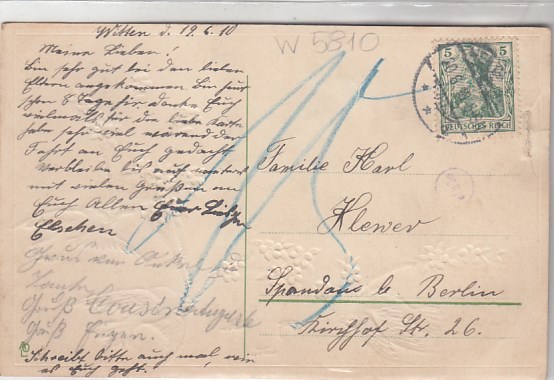 Witten d. 19.6.10
Meine Lieben!
Bin sehr gut bei den lieben
Eltern angekommen bin hier
schon 8 Tage für danke Euch
vielmals für die liebe Karte
habe sehr viel während der
Fahrt an Euch gedacht
verbleibe bis auf weiteres
mit vielen Grüßen an
Euch Allen Eure
Elschen
Gruß von
Tante
Gruß Cousine
Gruß Eugen.
Schreibt bitte auch mal, wie
es Euch geht.
W 5810
5 5
DEUTSCHES REICH
Familie Karl
Klewer
Spandau b. Berlin
Kirchhof Str. 26.